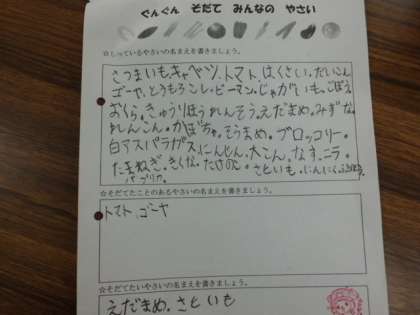 ぐんぐん そだて みんなの やさい
☆しっているやさいの名まえを書きましょう。
さつまいも、キャベツ、トマト、はくさい、だいこん
ゴーヤ、とうもろこし、ピーマン、じゃがいも、ごぼう
おくら。きゅうりほうれんそう、えだまめ。みずな。
れんこん。かぼちゃ。そらまめ。ブロッコリー。
白アスパラガス、にんじん、大こん、なす、ニラ。
たまねぎ。きくな。たけのこ。さといも、にんにく、
パプリカ。
☆そだてたことのあるやさいの名まえを書きましょう。
トマト、ゴーヤ
☆そだてたいやさいの名まえを書きましょう。
えだまめ。さといも